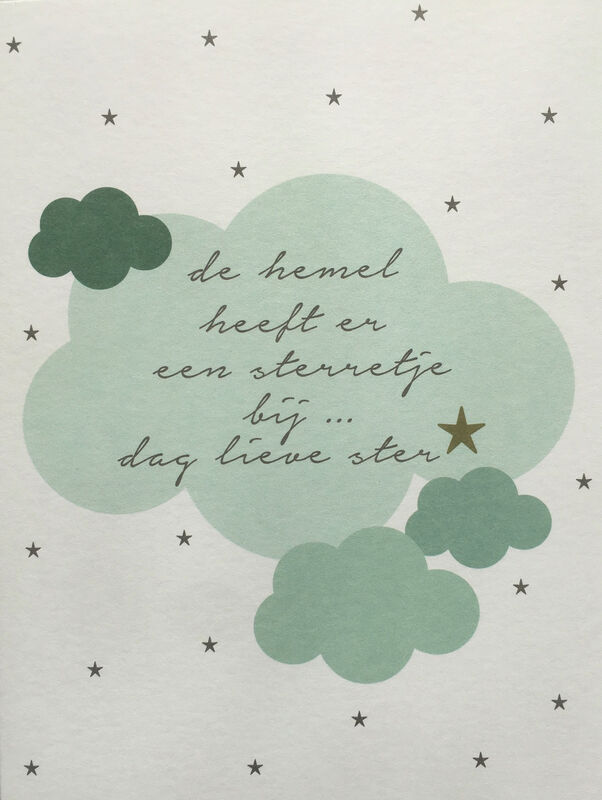 de hemel
heeft er
een sterretje
bij ...
dag lieve ster